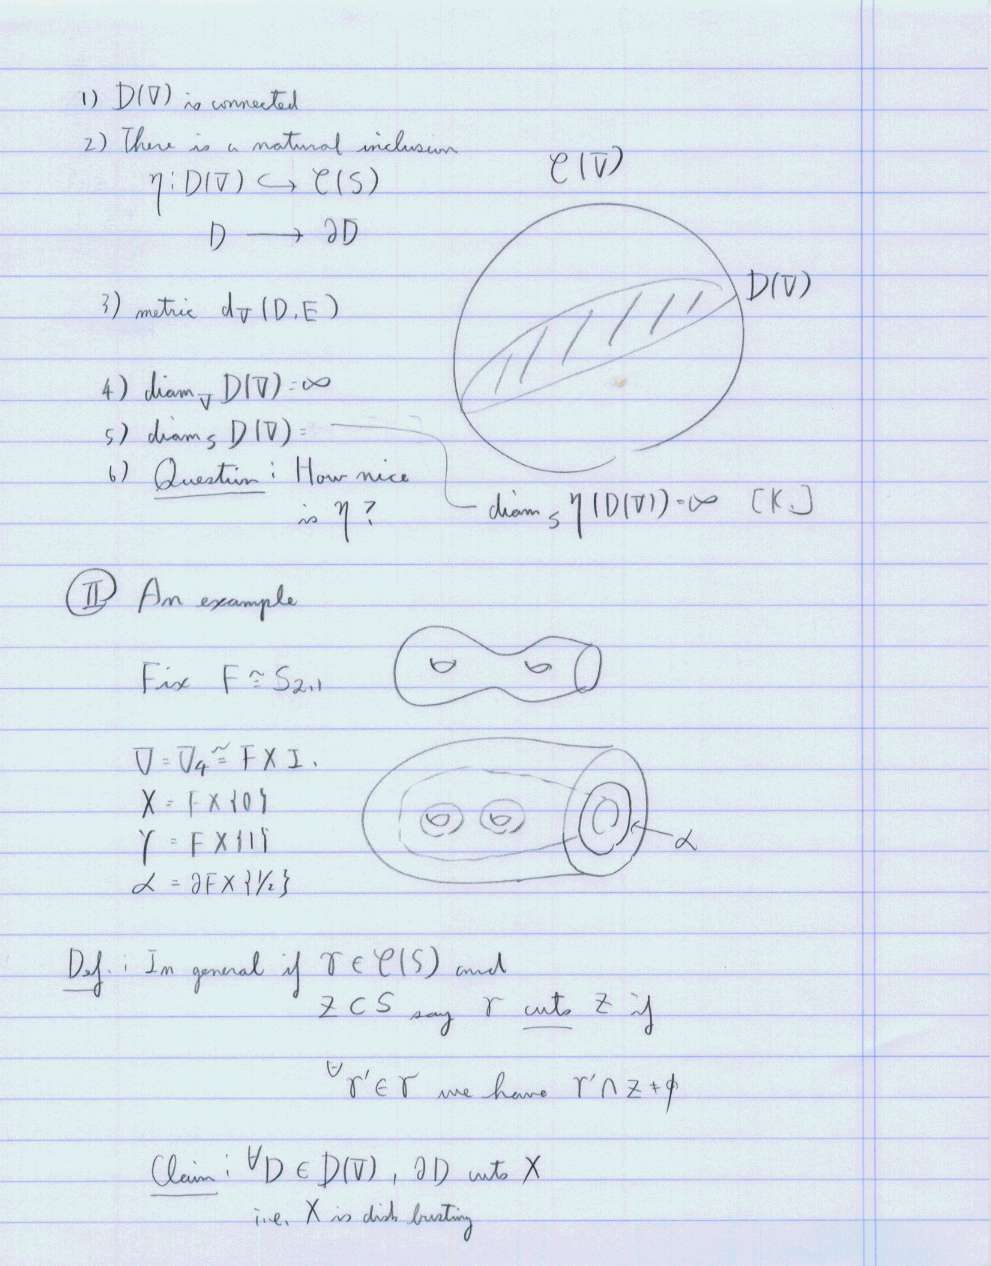 1) D(V) is connected
2) There is a natural inclusion
η: D(V) ↪ C(S)
D ⟶ ∂D
C(V)
D(V)
3) metric d_V (D, E)
4) diam_V D(V) = ∞
5) diam_S D(V) =
6) Question: How nice
is η?
diam_S η(D(V)) = ∞ [K.]
II An example
Fix F ≅ S_{2,1}
V = V_4 ≅ F X I.
X = F X {0}
Y = F X {1}
α = ∂F X {1/2}
α
Def.: In general if γ ∈ C(S) and
Z ⊂ S say γ cuts Z if
∀γ' ∈ γ we have γ' ∩ Z ≠ ∅
Claim: ∀D ∈ D(V), ∂D cuts X
i.e. X is disk busting